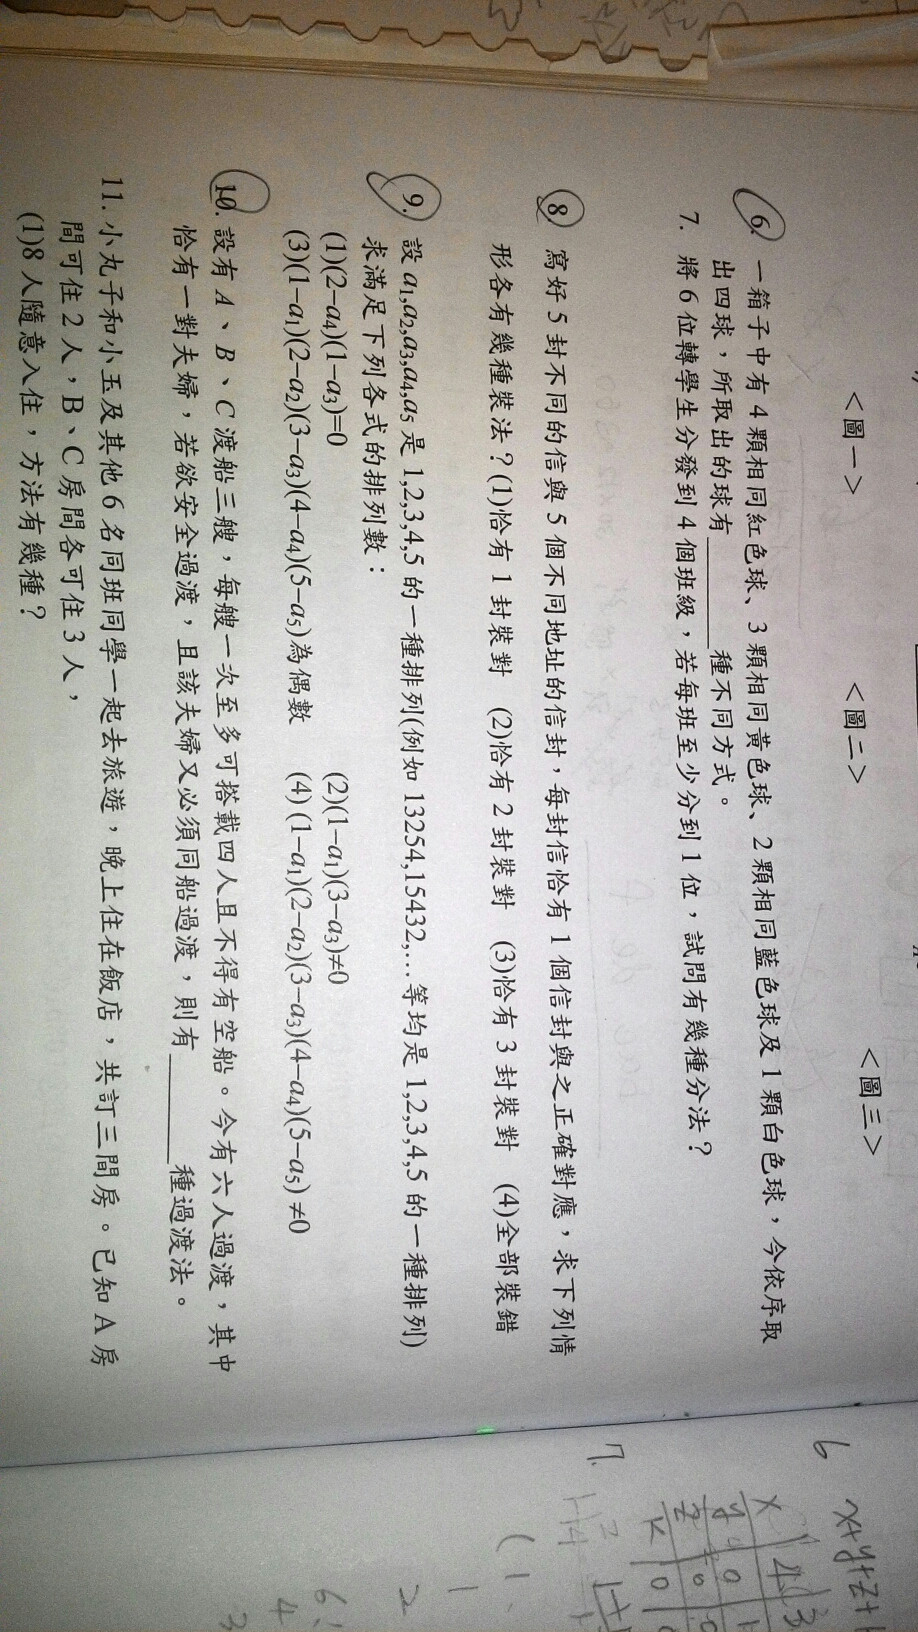 <圖一> <圖二> <圖三>
6. 一箱子中有 4 顆相同紅色球、3 顆相同黃色球、2 顆相同藍色球及 1 顆白色球，今依序取
出四球，所取出的球有______種不同方式。
7. 將 6 位轉學生分發到 4 個班級，若每班至少分到 1 位，試問有幾種分法？
8. 寫好 5 封不同的信與 5 個不同地址的信封，每封信恰有 1 個信封與之正確對應，求下列情
形各有幾種裝法？(1)恰有 1 封裝對 (2)恰有 2 封裝對 (3)恰有 3 封裝對 (4)全部裝錯
9. 設 a₁,a₂,a₃,a₄,a₅ 是 1,2,3,4,5 的一種排列(例如 13254,15432,…等均是 1,2,3,4,5 的一種排列)
求滿足下列各式的排列數：
(1)(2−a₄)(1−a₃)=0 (2)(1−a₁)(3−a₃)≠0
(3)(1−a₁)(2−a₂)(3−a₃)(4−a₄)(5−a₅)為偶數 (4) (1−a₁)(2−a₂)(3−a₃)(4−a₄)(5−a₅) ≠0
10. 設有 A、B、C 渡船三艘，每艘一次至多可搭載四人且不得有空船。今有六人過渡，其中
恰有一對夫婦，若欲安全過渡，且該夫婦又必須同船過渡，則有______種過渡法。
11. 小丸子和小玉及其他 6 名同班同學一起去旅遊，晚上住在飯店，共訂三間房。已知 A 房
間可住 2 人，B、C 房間各可住 3 人，
(1)8 人隨意入住，方法有幾種？
6 x+y+z+
x 4 3
y 0
z 0
k 0
7.